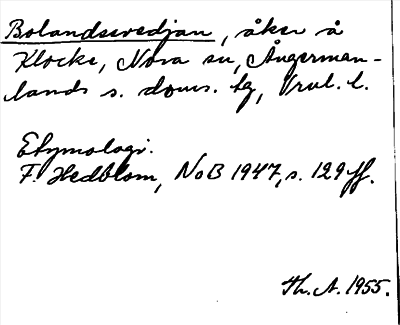 Bolandssvedjan, åker å
Klocke, Nora sn, Ångerman-
lands s. doms. tg, Vrul. l.
Etymologi.
F. Hedblom, NoB 1947, s. 129 ff.
Th. A. 1955.